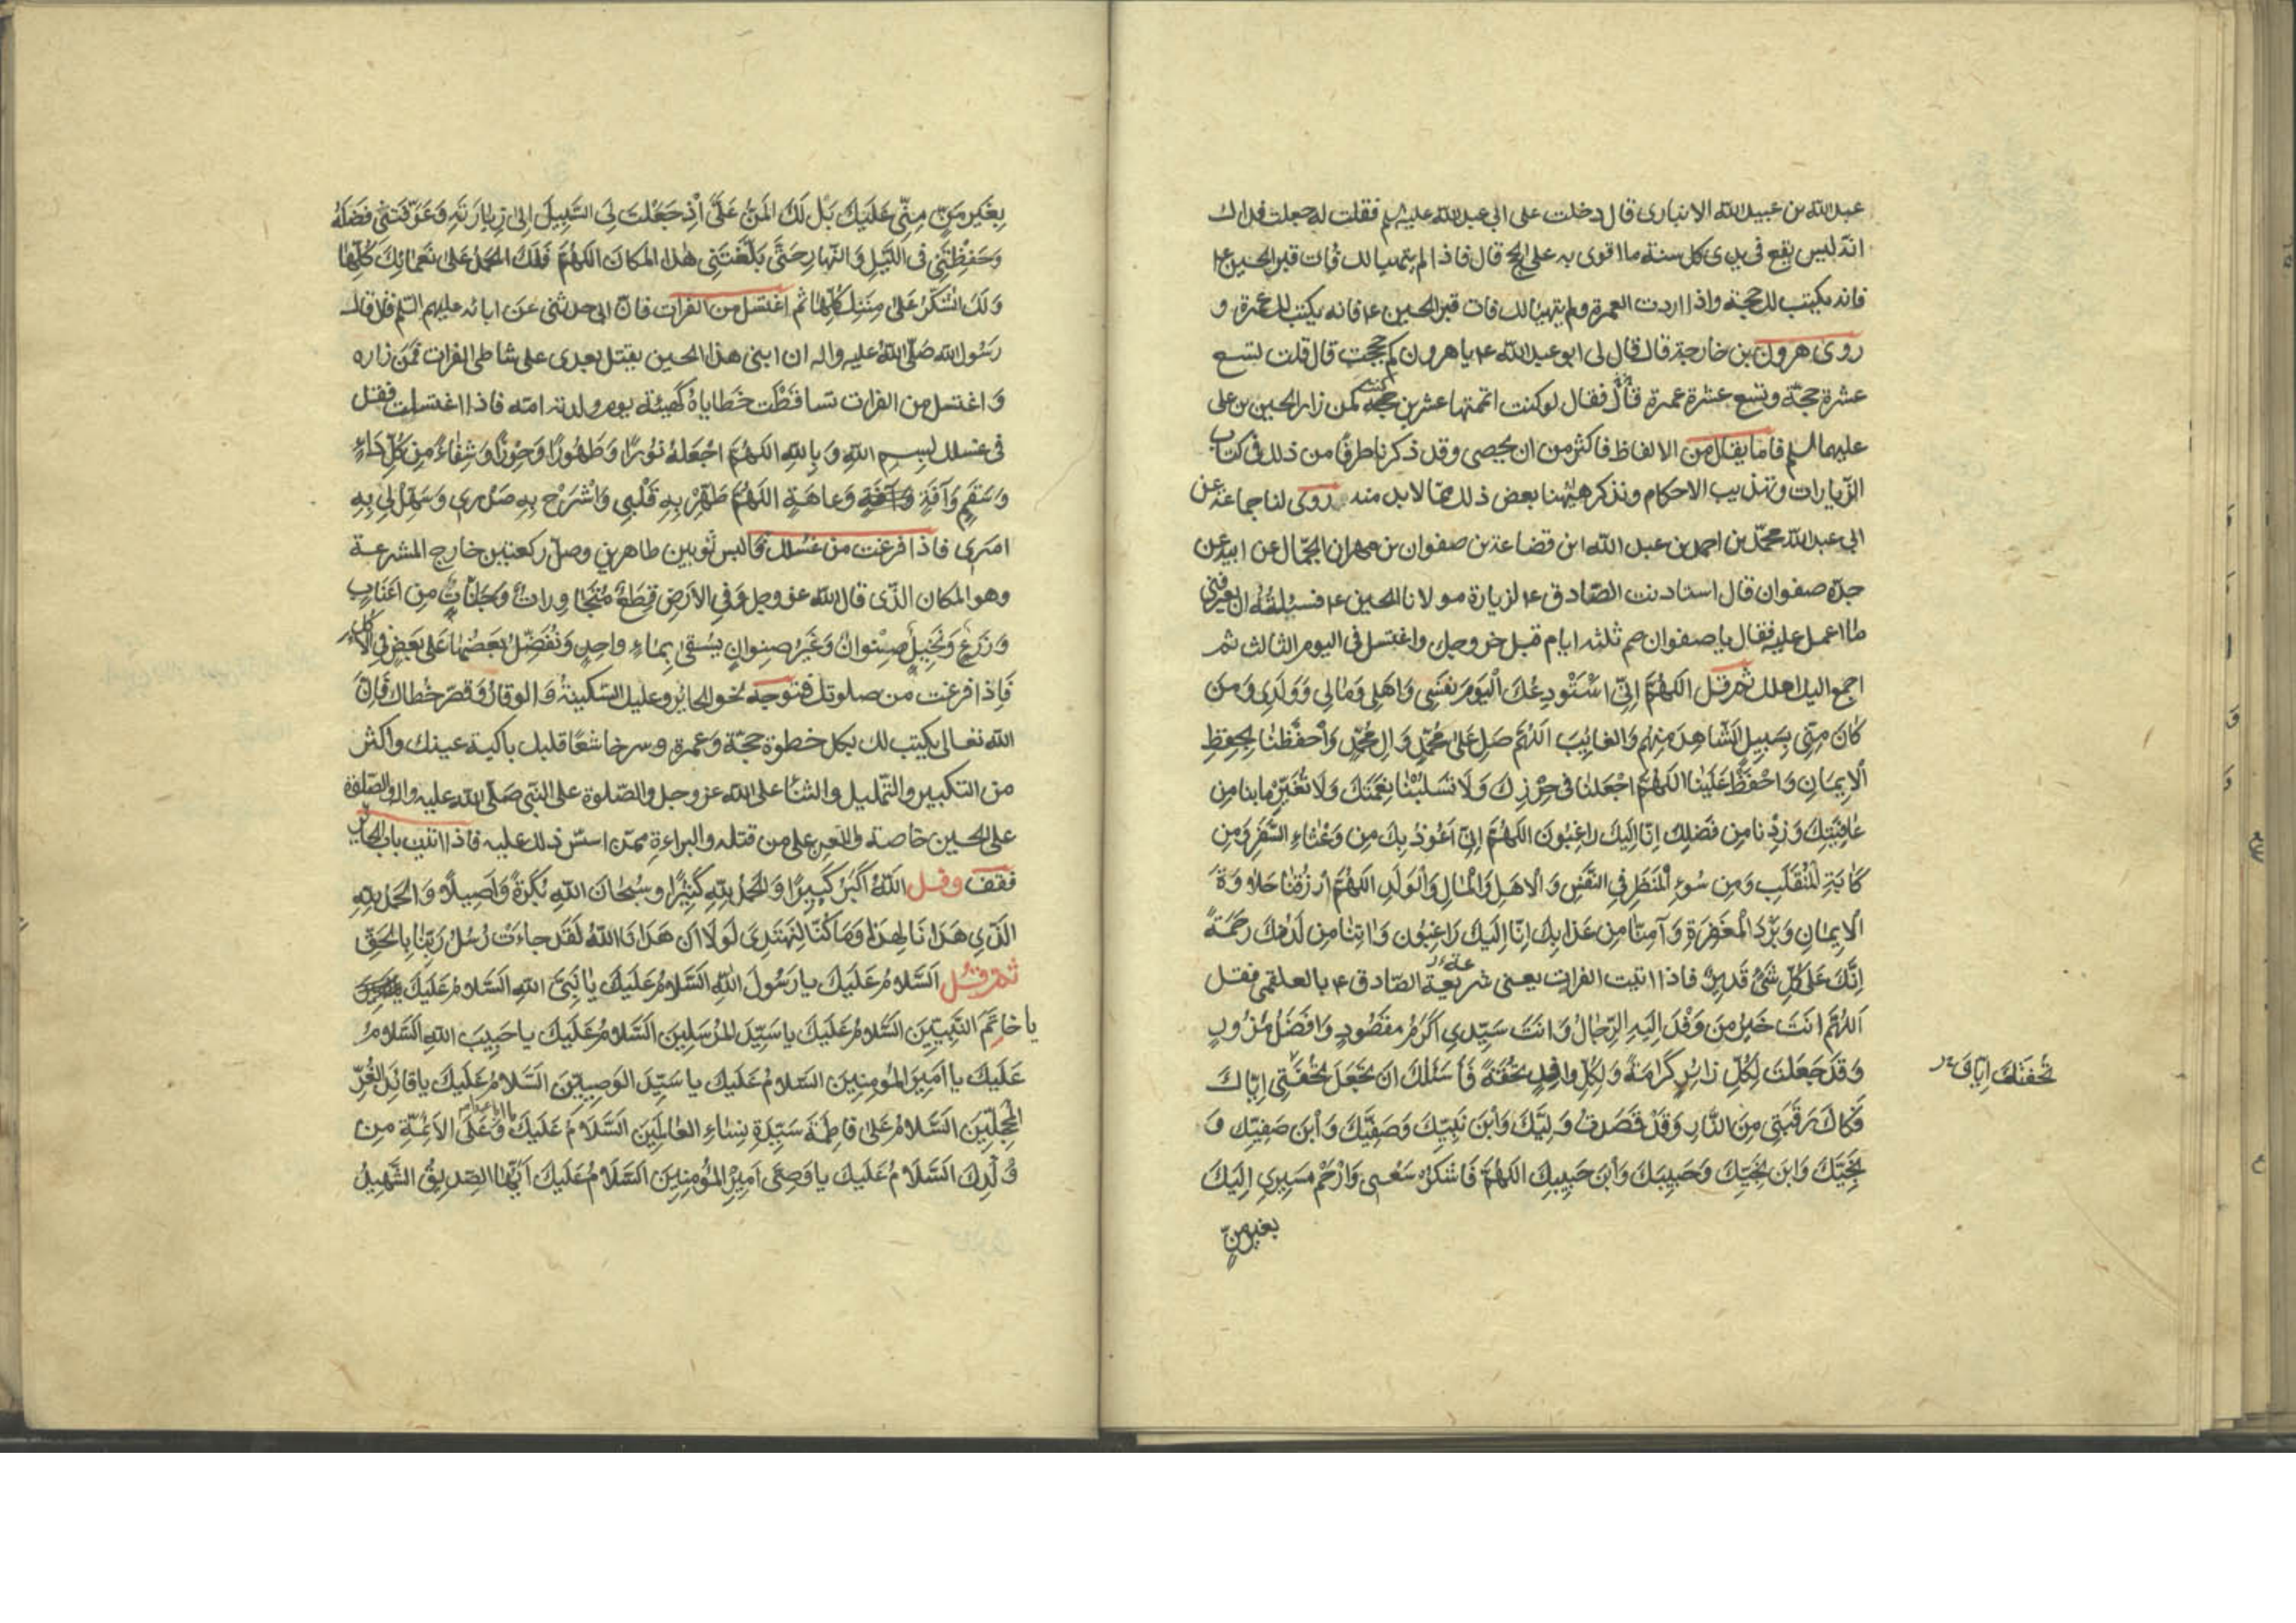 عبدالله بن عبيدالله الانبارى قال دخلت على ابي عبدالله عليه السلم فقلت له جعلت فداك
انه ليس يقع فى يدى كل سنة ما اقوى به على الحج قال فاذا لم يتهيا لك فات قبر الحسين ع
فانه يكتب لك حجة واذا اردت العمرة ولم يتهيا لك فات قبر الحسين ع فانه يكتب لك عمرة و
روى هرون بن خارجة قال قال لى ابو عبدالله ع يا هرون كم حججت قال قلت تسع
عشرة حجّة وتسع عشرة عمرة قال فقال لو كنت اتممتها عشرين حجة كنت كمن زار الحسين بن على
عليهما السلم فاما يقال من الالفاظ فاكثر من ان يحصى وقد ذكرنا طرفًا من ذلك فى كتاب
الزيارات وتهذيب الاحكام ونذكر هيهنا بعض ذلك ممّا لابد منه روى لنا جماعة عن
ابى عبدالله محمّد بن احمد بن عبدالله ابن قضاعة بن صفوان بن مهران الجمّال عن ابيه عن
جدّه صفوان قال استاذنت الصّادق ع لزيارة مولانا الحسين ع فسئلته ان يعرفنى
ما اعمل عليه فقال يا صفوان صم ثلثه ايام قبل خروجك واغتسل فى اليوم الثالث ثم
اجمع اليك اهلك ثم قل اللهُمَّ اِنّى اَسْتَودِعُكَ اليَومَ نَفسَى وَاَهلِى وَمَالِى وَوَلَدِى وَمَن
كانَ مِنّى بِسَبِيلٍ الشّاهِدَ مِنهُم وَالغائِبَ اللهُمَّ صَلِ عَلى مُحمّدٍ وَالِ مُحَمّدٍ وَاحفَظنا بِحِفظِ
الاِيمانِ وَاحْفَظْ عَلَينا اللهُمَّ اجْعَلنا فى حِرزِكَ وَلا تَسلُبْنا نِعمَتَكَ وَلا تُغَيِّر ما بنا مِن
عافِيَتِكَ وَزِدْنا مِن فَضلِكَ اِنّا اِلَيكَ راغِبُونَ اللهُمَّ اِنّى اَعُوذُ بِكَ مِن وَعْثاءِ السَّفَرِ وَمِن
كابَةِ المُنقَلَبِ وَمِن سُوءِ المَنظَرِ فِى النَّفسِ وَالاهلِ وَالمالِ وَالوَلَدِ اللهُمَّ ارزُقنا حَلاوَةَ
الاِيمانِ وَبَردَ المَغفِرَةِ وَآمِنّا مِن عَذابِكَ اِنّا اِلَيكَ راغِبُون وَاتِنا مِن لَدُنكَ رَحمَةً
اِنَّكَ عَلى كُلِّ شَىءٍ قَدِيرٌ فاذا اتيت الفرات يعنى شريعة الصّادق ع بالعلقمى فقل
اَللهُمَّ انتَ خَيرُ مَن وَفَدَ اِلَيهِ الرِّجالُ وَانتَ سَيِّدِى اَكرَمُ مَقصُودٍ وَافضَلُ مَزُورٍ
وَقَد جَعَلتَ لِكُلِّ زائِرٍ كَرامَةً وَلِكُلِّ وافِدٍ تُحْفَةً فَأسئَلُكَ ان تَجعَلَ تُحْفَتى اِيّاكَ
تُحفَتَكَ اِيّاىَ
فَكاكَ رَقَبَتى مِنَ النّارِ وَقَد قَصَدتُ وَلِيَّكَ وَابنَ نَبِيّكَ وَصَفِيَّكَ وَابنَ صَفِيّكَ وَ
نَجِيَّكَ وَابنَ نَجِيّكَ وَحَبِيبَكَ وَابنَ حَبِيبِكَ اللهُمَّ فَاشكُر سَعيى وَارْحَمْ مَسِيرِى اِلَيكَ
بغير مَنّ
بِغَيرِ مَنٍّ مِنّى عَلَيكَ بَل لَكَ المَنُّ عَلَىَّ اِذ جَعَلتَ لِىَ السَّبِيلَ اِلى زِيارَتِهِ وَعَرَّفتَنِى فَضلَهُ
وَحَفِظتَنِى فى اللّيلِ وَالنّهارِ حَتّى بَلَّغتَنِى هذا المَكانَ اللهُمَّ فَلَكَ الحَمدُ عَلى نَعمائِكَ كُلِّها
وَلَكَ الشّكرُ عَلى مِنَنِكَ كُلِّها ثم اغتسل من الفرات فانّ ابى حدثنى عن ابائه عليهم السّلم قال قال
رَسُول الله صَلّى الله عليه واله ان ابنى هذا الحسين يقتل بعدى على شاطى الفرات فَمَن زاره
وَاغتسل من الفرات تساقَطَت خَطاياهُ كهيئة يوم ولدته امّه فاذا اغتسلت فقل
فى غسلك بِسمِ اللهِ وَبِاللهِ اللهُمَّ اجعَلهُ نُورًا وَطَهُورًا وَحِرزًا وَشِفاءً مِن كُلِّ داءٍ
وَسَقَمٍ وَآفَةٍ وَعاهَةٍ اللهُمَّ طَهِّر بِهِ قَلْبِى وَاشرَح بِهِ صَدرِى وَسَهِّل لِى بِهِ
امرِى فاذا فرغت من غسلك فالبس ثوبين طاهرين وصلّ ركعتين خارج المشرعة
وهو المكان الذّى قال الله عزوجل وَفِى الاَرضِ قِطَعٌ مُتَجاوِراتٌ وَجَنّاتٌ مِن اَعنابٍ
وَزَرعٍ وَنَخِيلٍ صِنوانٌ وَغَيرُ صِنوانٍ يُسقى بِماءٍ واحِدٍ وَنُفَضِّلُ بَعضَها عَلى بَعضٍ فِى الاُكُلِ
فَاِذا فرغت من صلوتك فتوجه نحو الحائر وعليك السّكينة وَالوقار وَقصّر خُطاك فَاِنّ
الله تعالى يكتب لك بكل خطوة حجّة وَعمرة وسر خاشعًا قلبك باكية عينك واكثر
من التكبير والتّهليل والثنا على الله عزوجل والصّلوة على النّبى صَلّى الله عليه واله والصّلوة
على الحسين خاصة والّعن على من قتله والبراءة ممّن اسّس ذلك عليه فاذا اتيت باب الحائر
فقف وقل اَللهُ اَكبَرُ كَبِيرًا وَالحَمدُ لِلّهِ كَثِيرًا وسُبحانَ اللهِ بُكرَةً وَاَصِيلًا وَالحَمدُ لِلّهِ
الذّى هَدانا لِهذا وَما كُنّا لِنَهتَدِىَ لَولا اَن هَدانَا اللهُ لَقَد جاءَت رُسُلُ رَبِّنا بِالحَقِّ
ثم قل اَلسَّلامُ عَلَيكَ يا رَسُولَ اللهِ السَّلامُ عَلَيكَ يا نَبِىَّ اللهِ السَّلامُ عَلَيكَ
يا خاتَمَ النَّبِيّينَ السَّلامُ عَلَيكَ يا سَيِّدَ المُرسَلِينَ السَّلامُ عَلَيكَ يا حَبِيبَ اللهِ السَّلامُ
عَلَيكَ يا اَمِيرَ المُومِنِينَ السَلامُ عَلَيكَ يا سَيِّدَ الوَصِيّينَ السَّلامُ عَلَيكَ يا قائِدَ الغُرِّ
المُحَجَّلِينَ السَّلامُ عَلى فاطِمَةَ سَيِّدَةِ نِساءِ العالَمِينَ السَّلامُ عَلَيكَ وَعَلَى الاَئِمّةِ مِن
وُلدِكَ السَّلامُ عَلَيكَ يا وَصِىَّ اَمِيرِ المُؤمِنِينَ السَّلامُ عَلَيكَ اَيُّها الصِدِيقُ الشَّهِيدُ